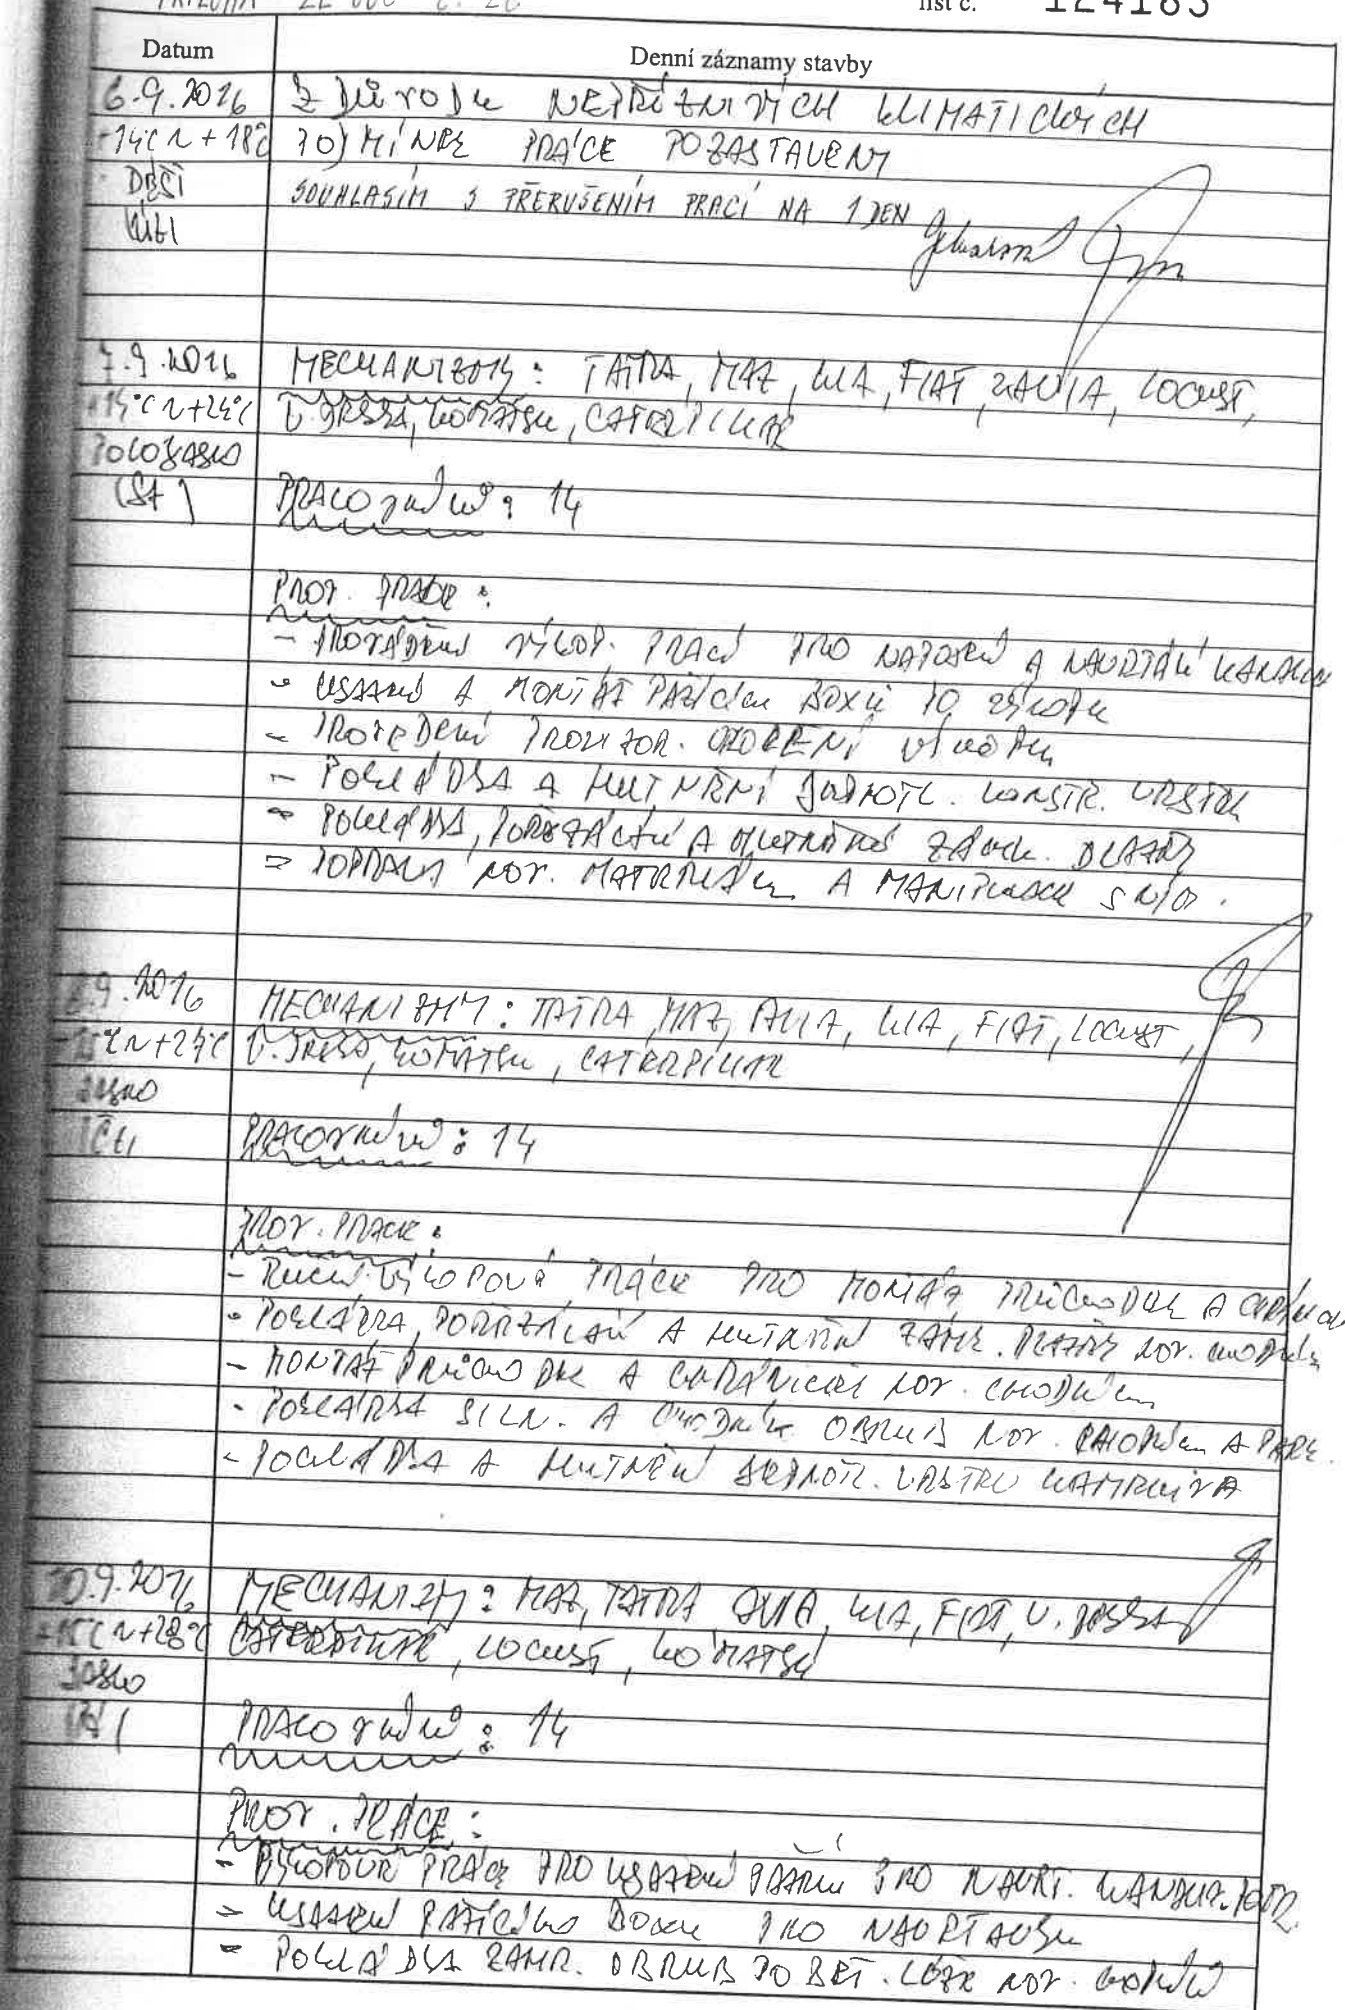 list č. 124183
Datum
Denní záznamy stavby
6.9.2016 Z DŮVODU NEPŘÍZNIVÝCH KLIMATICKÝCH
14°C ~ +18°C PODMÍNEK PRÁCE POZASTAVENY
DÉŠŤ SOUHLASÍM S PŘERUŠENÍM PRACÍ NA 1 DEN
(ÚT)
7.9.2016 MECHANIZMY: TATRA, MAZ, KIA, FIAT, AVIA, LOCUST,
V. DESKA, KOMATSU, CATERPILLAR
POLOJASNO
(ST) PRACOVNÍKŮ: 14
PROV. PRÁCE:
- PROVÁDĚNÍ VÝKOP. PRACÍ PRO NAPOJENÍ A NAVRTÁNÍ KANALIZ
- USAZENÍ A MONTÁŽ PAŽÍCÍCH BOXŮ DO VÝKOPU
- PROVEDENÍ PROVIZOR. OPLOCENÍ VÝKOPU
- POKLÁDKA A HUTNĚNÍ JEDNOTL. KONSTR. VRSTEV
- POKLÁDKA, DOŘEZÁVÁNÍ A HUTNĚNÍ ZÁMK. DLAŽBY
- DOPRAVA NOV. MATERIÁLU A MANIPULACE S NÍM.
9.2016 MECHANIZMY: TATRA, MAZ, AVIA, KIA, FIAT, LOCUST,
V. DESKA, KOMATSU, CATERPILLAR
JASNO
(ČT) PRACOVNÍKŮ: 14
PROV. PRÁCE:
- RUČNÍ VÝKOPOVÁ PRÁCE PRO MONTÁŽ PRŮCHODEK A CHRÁNIČ
- POKLÁDKA, DOŘEZÁVÁNÍ A HUTNĚNÍ ZÁMK. DLAŽBY NOV. CHODNÍKU
- MONTÁŽ PRŮCHODEK A CHRÁNIČEK NOV. CHODNÍKU
- POKLÁDKA SILN. A CHODNÍK. OBRUB NOV. CHODNÍKU A PARK.
- POKLÁDKA A HUTNĚNÍ JEDNOTL. VRSTEV KAMENIVA
9.2016 MECHANIZMY: MAZ, TATRA AVIA, KIA, FIAT, V. DESKA
+15°C ~ +28°C CATERPILLAR, LOCUST, KOMATSU
JASNO
(PÁ) PRACOVNÍKŮ: 14
PROV. PRÁCE:
- VÝKOPOVÉ PRÁCE PRO USAZENÍ PAŽENÍ PRO NAVRT. KANALIZ.
- USAZENÍ PAŽÍCÍHO BOXU PRO NAVRTÁVKU
- POKLÁDKA ZAHR. OBRUB DO BET. LOŽE NOV. CHODNÍKŮ